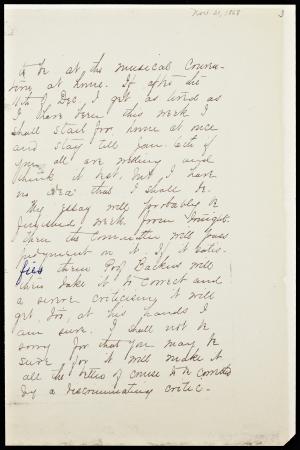 Nov. 21, 1868
3
to be at the musical Conven-
tion at home. If after the
11th of Dec. I get as tired as
I have been this week I
shall start for home at once
and stay till Jan. lots of
you all are willing and
think it best, but I have
no idea that I shall be.
My essay will probably be
finished week from tonight
then the Committee will pass
judgment on it if it satis-
fies them Prof Backus will
then take it to correct and
a severe criticising it will
get, too, at his hands I
am sure. I shall not be
sorry for that you may be
sure, for it will make it
all the better of course to be corrected
by a discriminating critic.